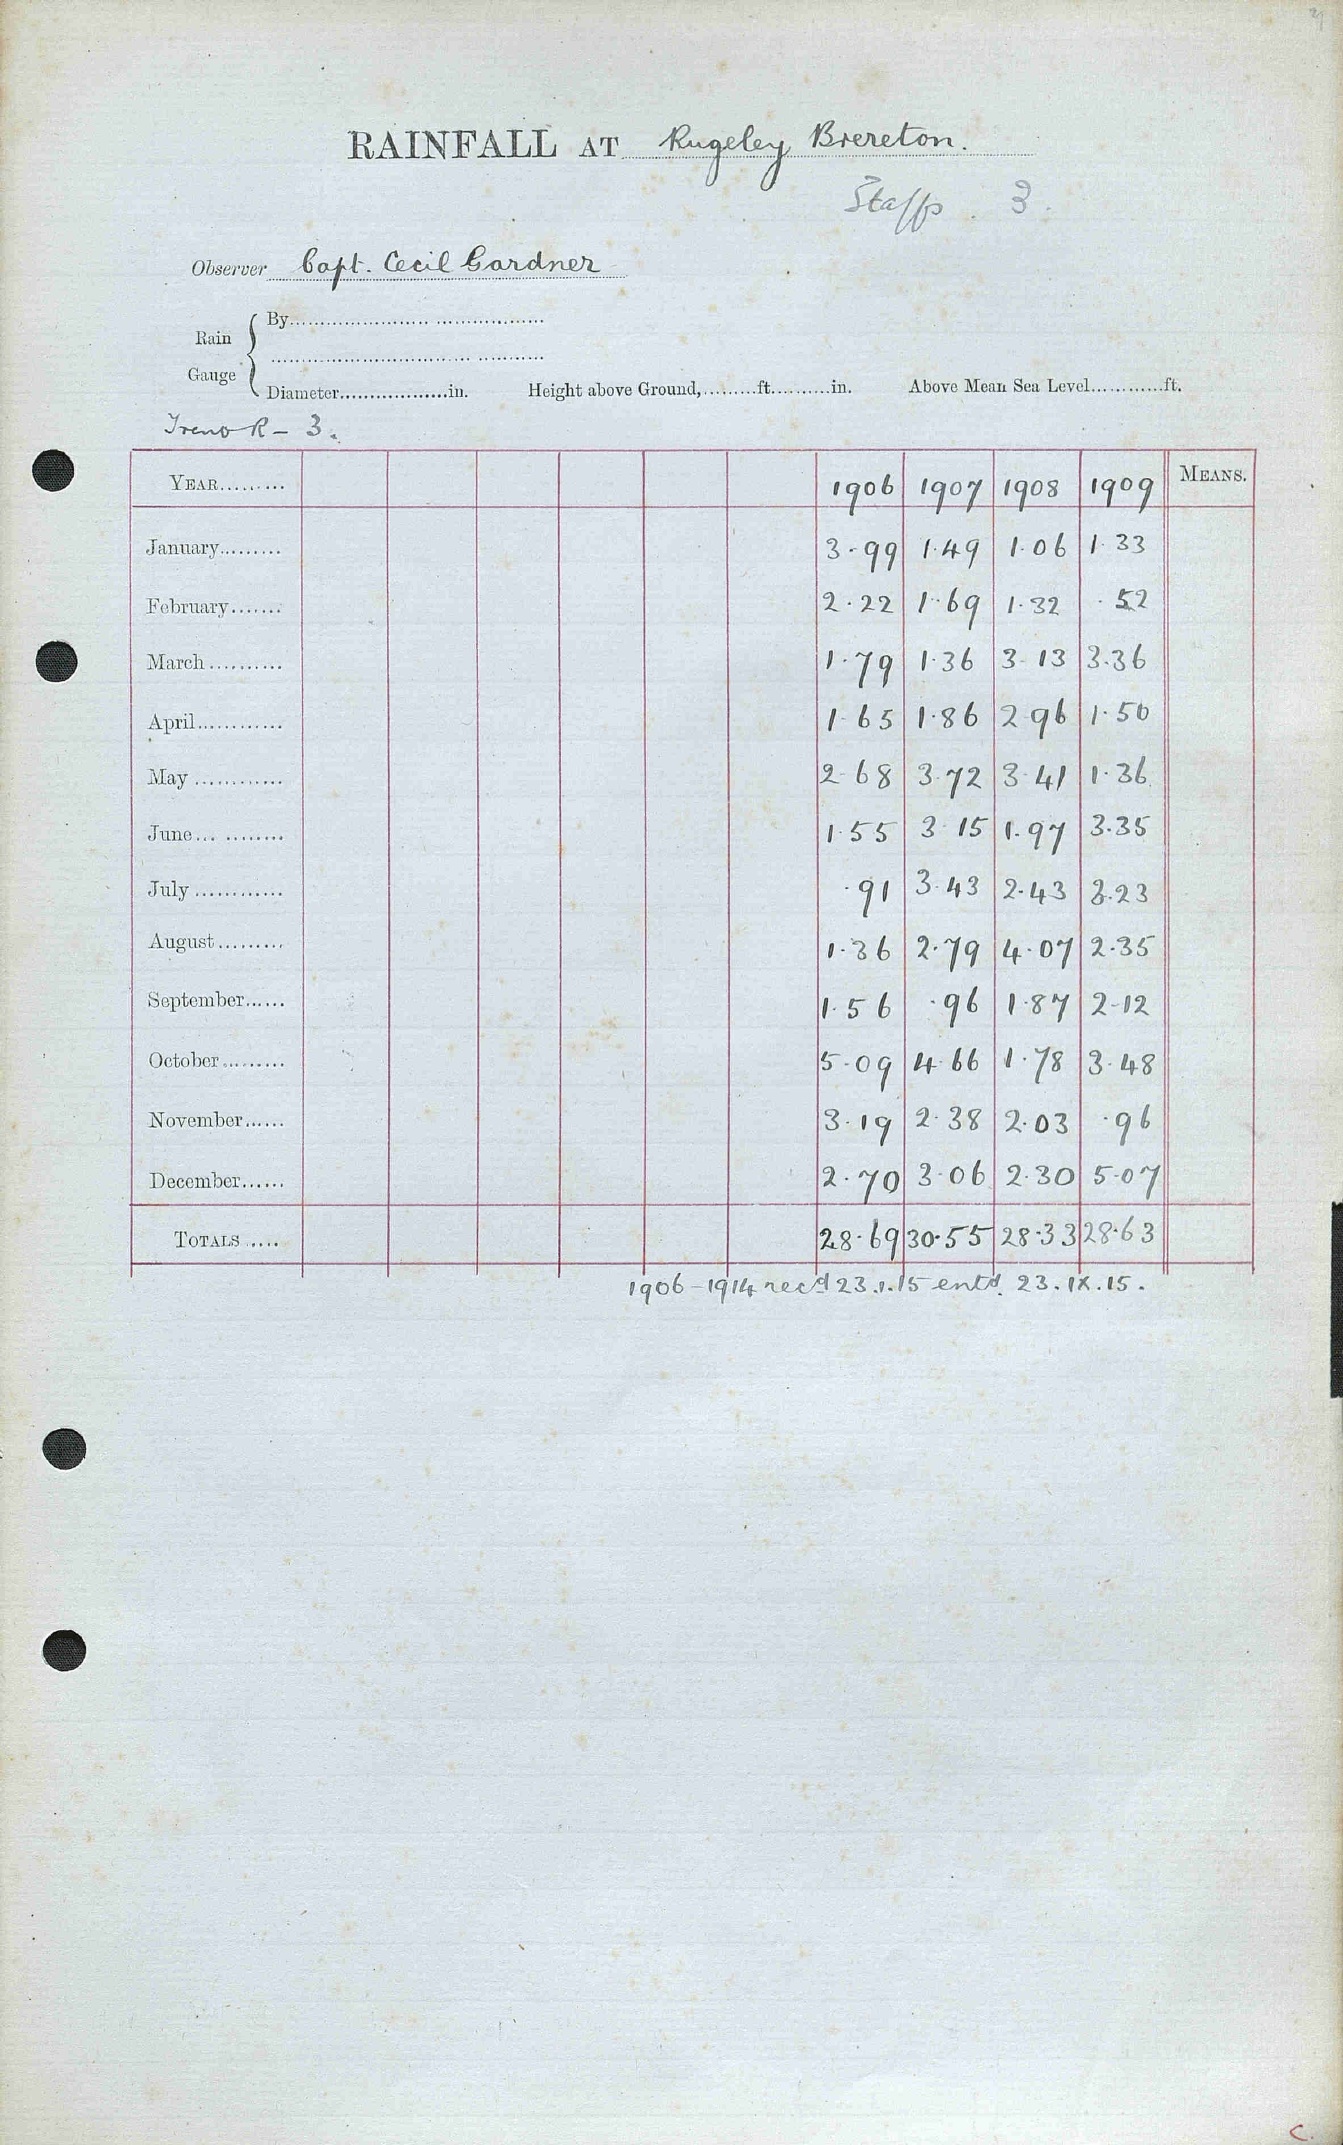 RAINFALL AT Rugeley Brereton.
Staffs. 3.
Observer Capt. Cecil Gardner
Rain Gauge { By
Diameter in. Height above Ground, ft. in. Above Mean Sea Level ft.
R - 3.
YEAR 1906 1907 1908 1909 MEANS.
January 3.99 1.49 1.06 1.33
February 2.22 1.69 1.32 .52
March 1.79 1.36 3.13 3.36
April 1.65 1.86 2.96 1.50
May 2.68 3.72 3.41 1.36
June 1.55 3.15 1.97 3.35
July .91 3.43 2.43 3.23
August 1.36 2.79 4.07 2.35
September 1.56 .96 1.87 2.12
October 5.09 4.66 1.78 3.48
November 3.19 2.38 2.03 .96
December 2.70 3.06 2.30 5.07
TOTALS 28.69 30.55 28.33 28.63
1906-1914 recd 23.1.15 entd. 23.IX.15.
C.